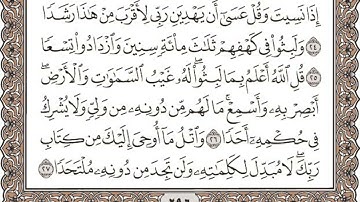 إِذَا نَسِيتَ وَقُلْ عَسَىٰٓ أَن يَهْدِيَنِ رَبِّى لِأَقْرَبَ مِنْ هَٰذَا رَشَدًا
٢٤ وَلَبِثُوا۟ فِى كَهْفِهِمْ ثَلَٰثَ مِا۟ئَةٍ سِنِينَ وَٱزْدَادُوا۟ تِسْعًا
٢٥ قُلِ ٱللَّهُ أَعْلَمُ بِمَا لَبِثُوا۟ لَهُۥ غَيْبُ ٱلسَّمَٰوَٰتِ وَٱلْأَرْضِ
أَبْصِرْ بِهِۦ وَأَسْمِعْ مَا لَهُم مِّن دُونِهِۦ مِن وَلِىٍّ وَلَا يُشْرِكُ
فِى حُكْمِهِۦٓ أَحَدًا ٢٦ وَٱتْلُ مَآ أُوحِىَ إِلَيْكَ مِن كِتَابِ
رَبِّكَ لَا مُبَدِّلَ لِكَلِمَٰتِهِۦ وَلَن تَجِدَ مِن دُونِهِۦ مُلْتَحَدًا ٢٧
٢٩٦